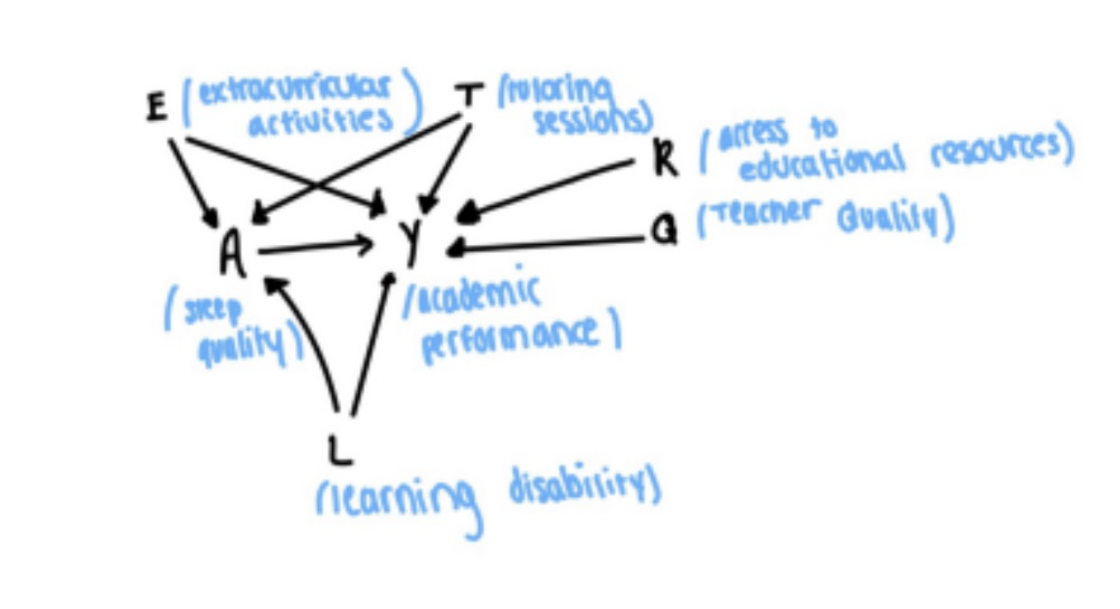 E (extracurricular activities)
T (tutoring sessions)
R (access to educational resources)
Q (Teacher Quality)
A
(sleep quality)
Y
(academic performance)
L
(learning disability)